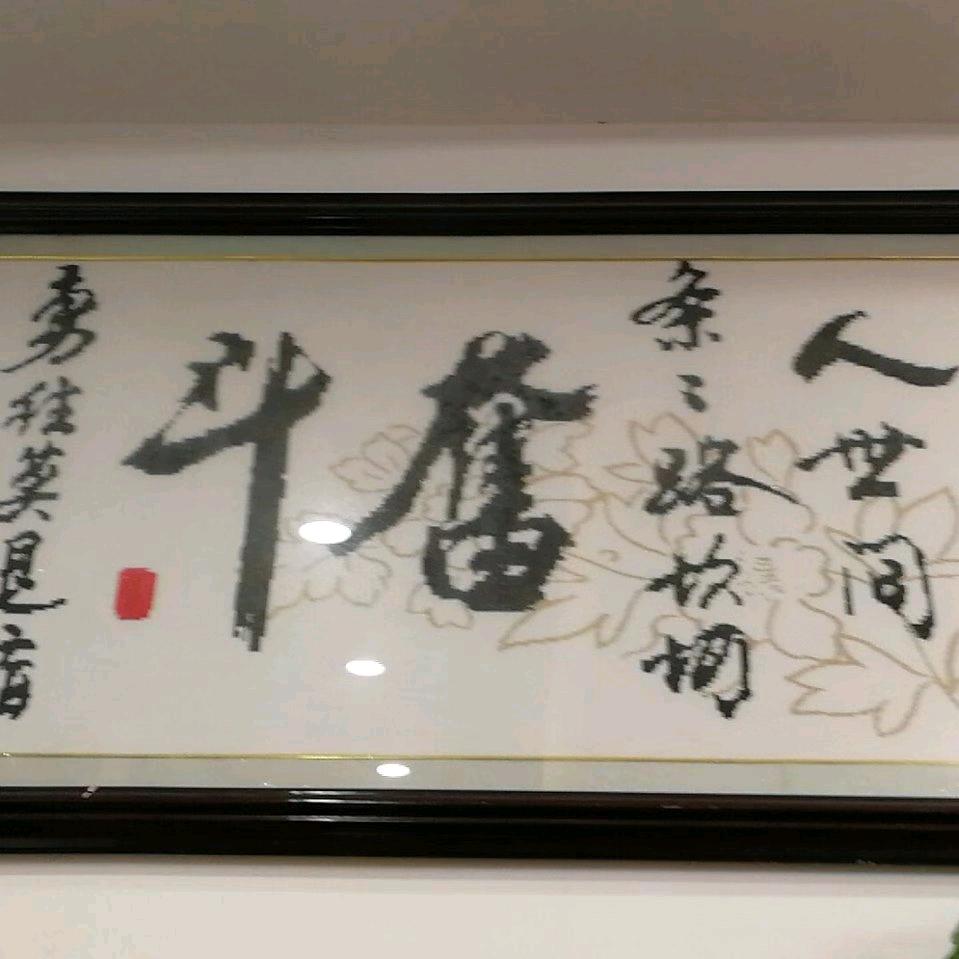 人世间
条々路坎坷
奮斗
勇往莫退